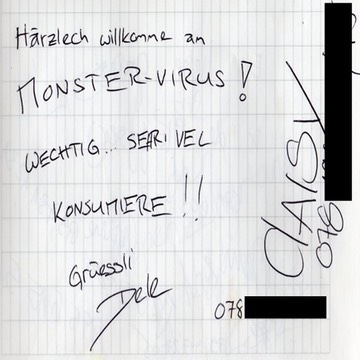 Härzlech willkomme am
MONSTER-VIRUS!
WECHTIG... SERI VEL
KONSUMIERE!!
Grüessli
Dele
078
DAISY
078